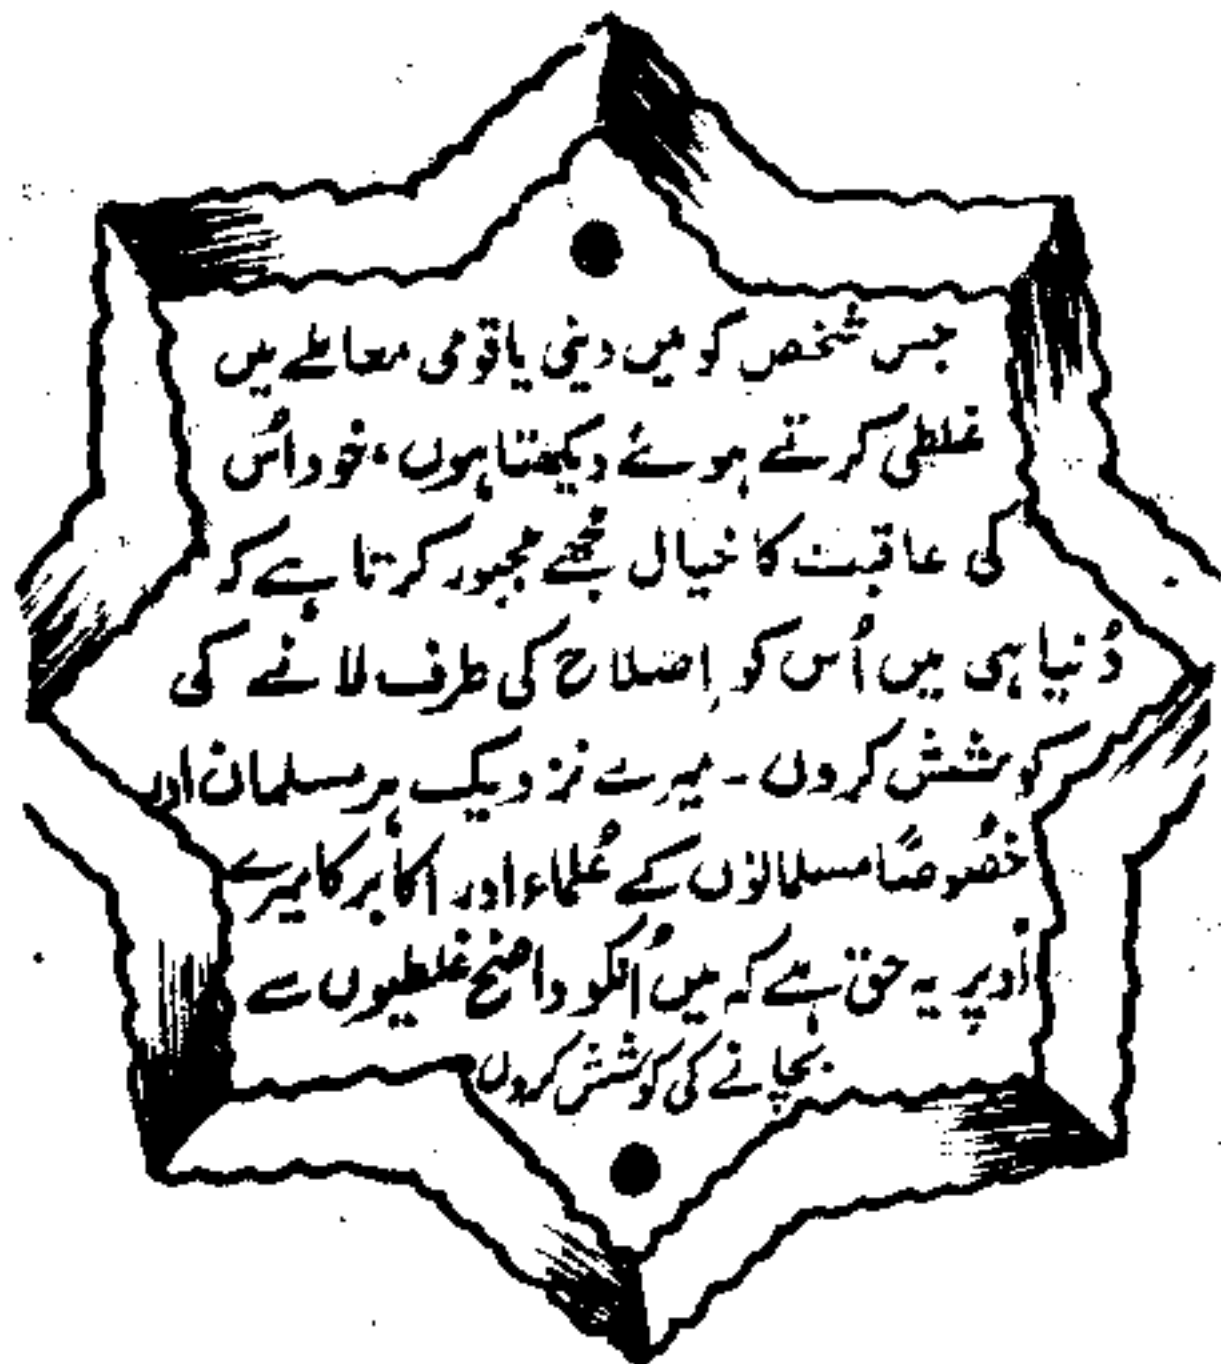 جس شخص کو میں دینی یا قومی معاملے میں
غلطی کرتے ہوئے دیکھتا ہوں، خود اُس
کی عاقبت کا خیال مجھے مجبور کرتا ہے کہ
دُنیا ہی میں اُس کو اِصلاح کی طرف لانے کی
کوشش کروں ۔ میرے نزدیک ہر مسلمان اور
خصُوصًا مسلمانوں کے عُلماء اور اکابر کا میرے
اُوپر یہ حق ہے کہ میں اُنکو واضح غلطیوں سے
بچانے کی کوشش کروں